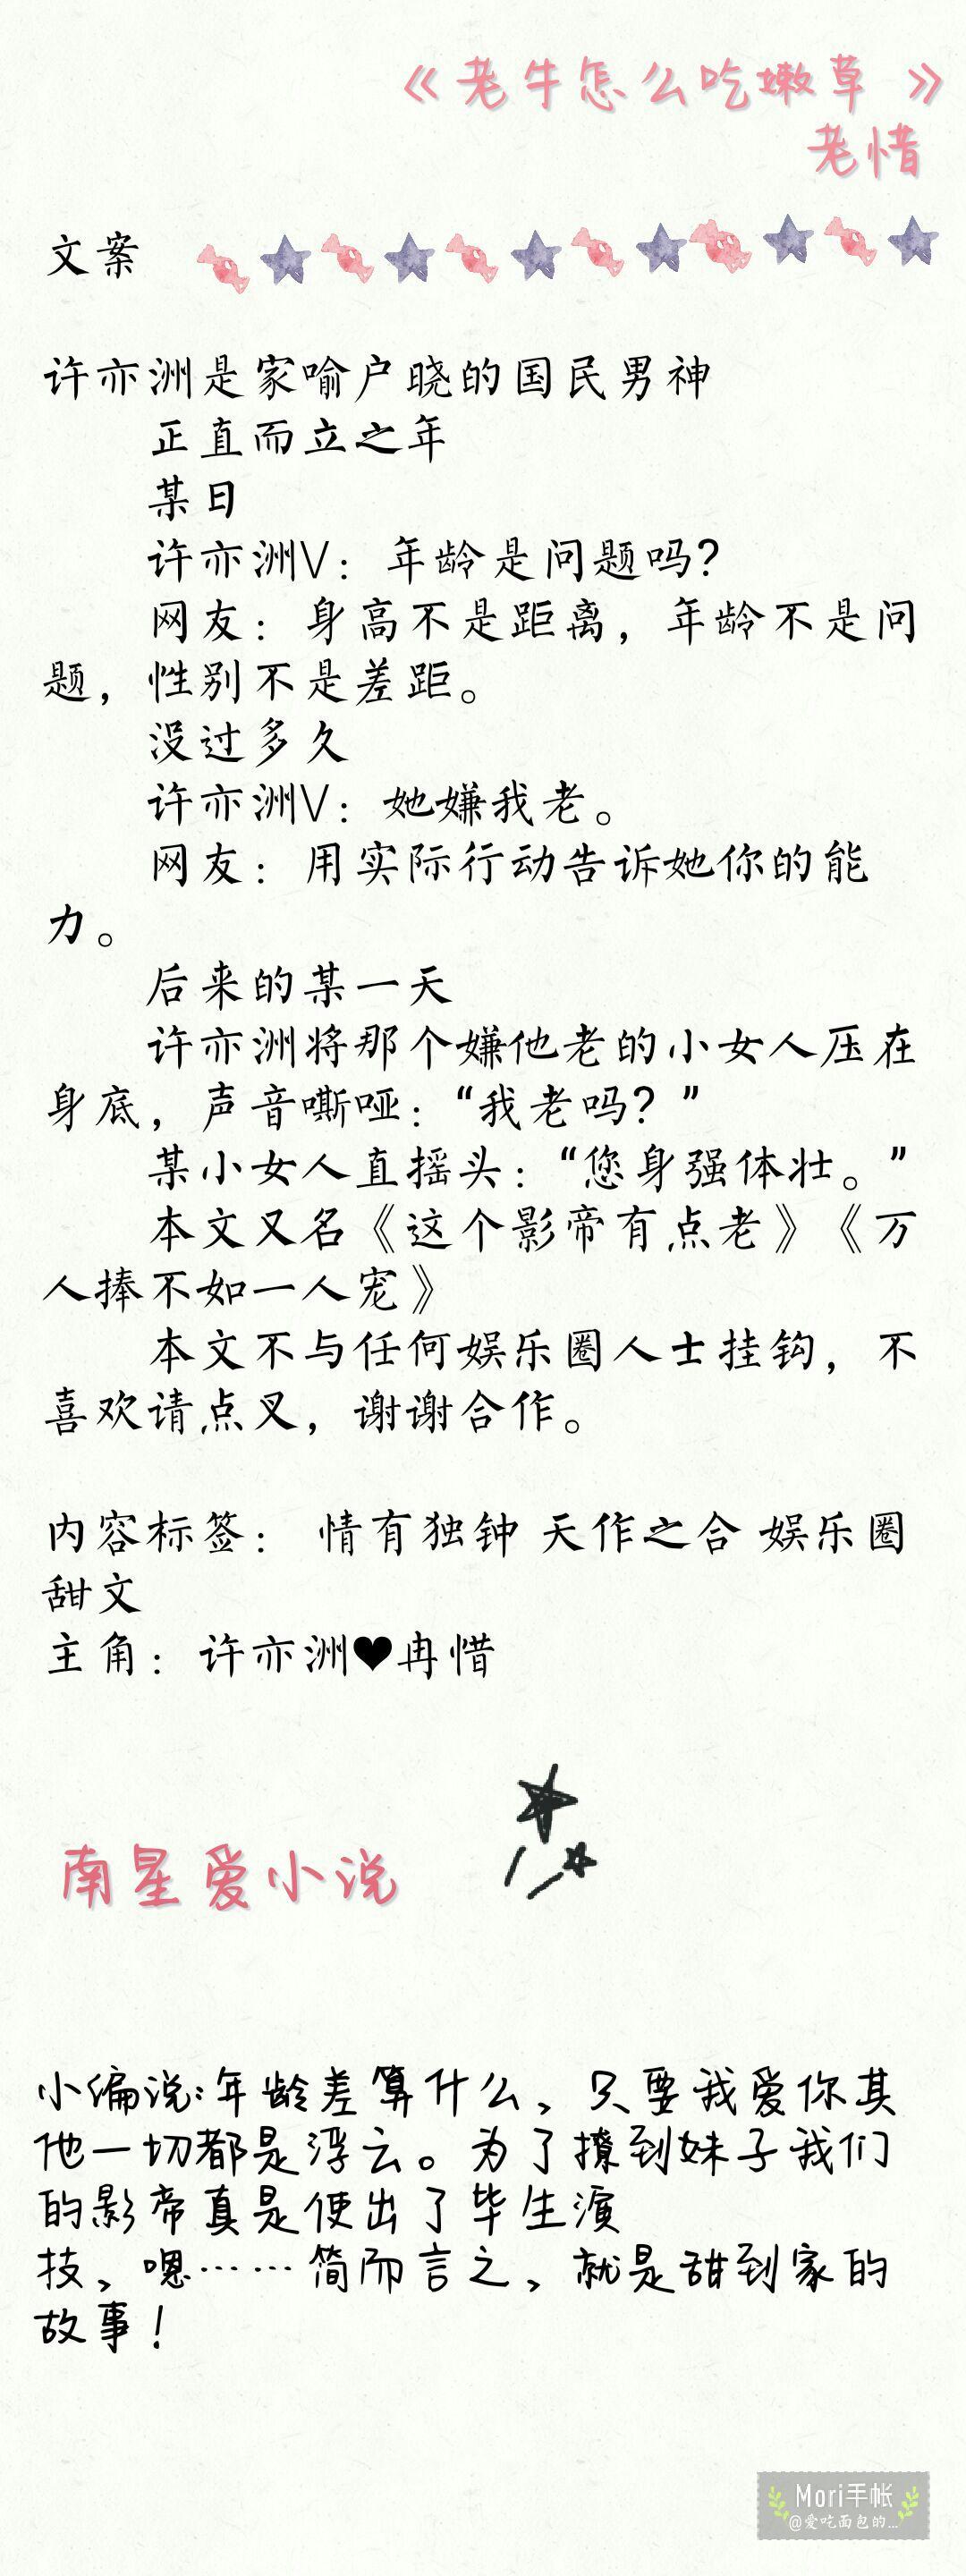 《老牛怎么吃嫩草 》
老惜
文案
许亦洲是家喻户晓的国民男神
正直而立之年
某日
许亦洲V：年龄是问题吗？
网友：身高不是距离，年龄不是问
题，性别不是差距。
没过多久
许亦洲V：她嫌我老。
网友：用实际行动告诉她你的能
力。
后来的某一天
许亦洲将那个嫌他老的小女人压在
身底，声音嘶哑：“我老吗？”
某小女人直摇头：“您身强体壮。”
本文又名《这个影帝有点老》《万
人捧不如一人宠》
本文不与任何娱乐圈人士挂钩，不
喜欢请点叉，谢谢合作。
内容标签： 情有独钟 天作之合 娱乐圈
甜文
主角：许亦洲❤冉惜
南星爱小说
小编说:年龄差算什么，只要我爱你其
他一切都是浮云。为了撩到妹子我们
的影帝真是使出了毕生演
技，嗯……简而言之，就是甜到家的
故事！
Mori手帐
@爱吃面包的...